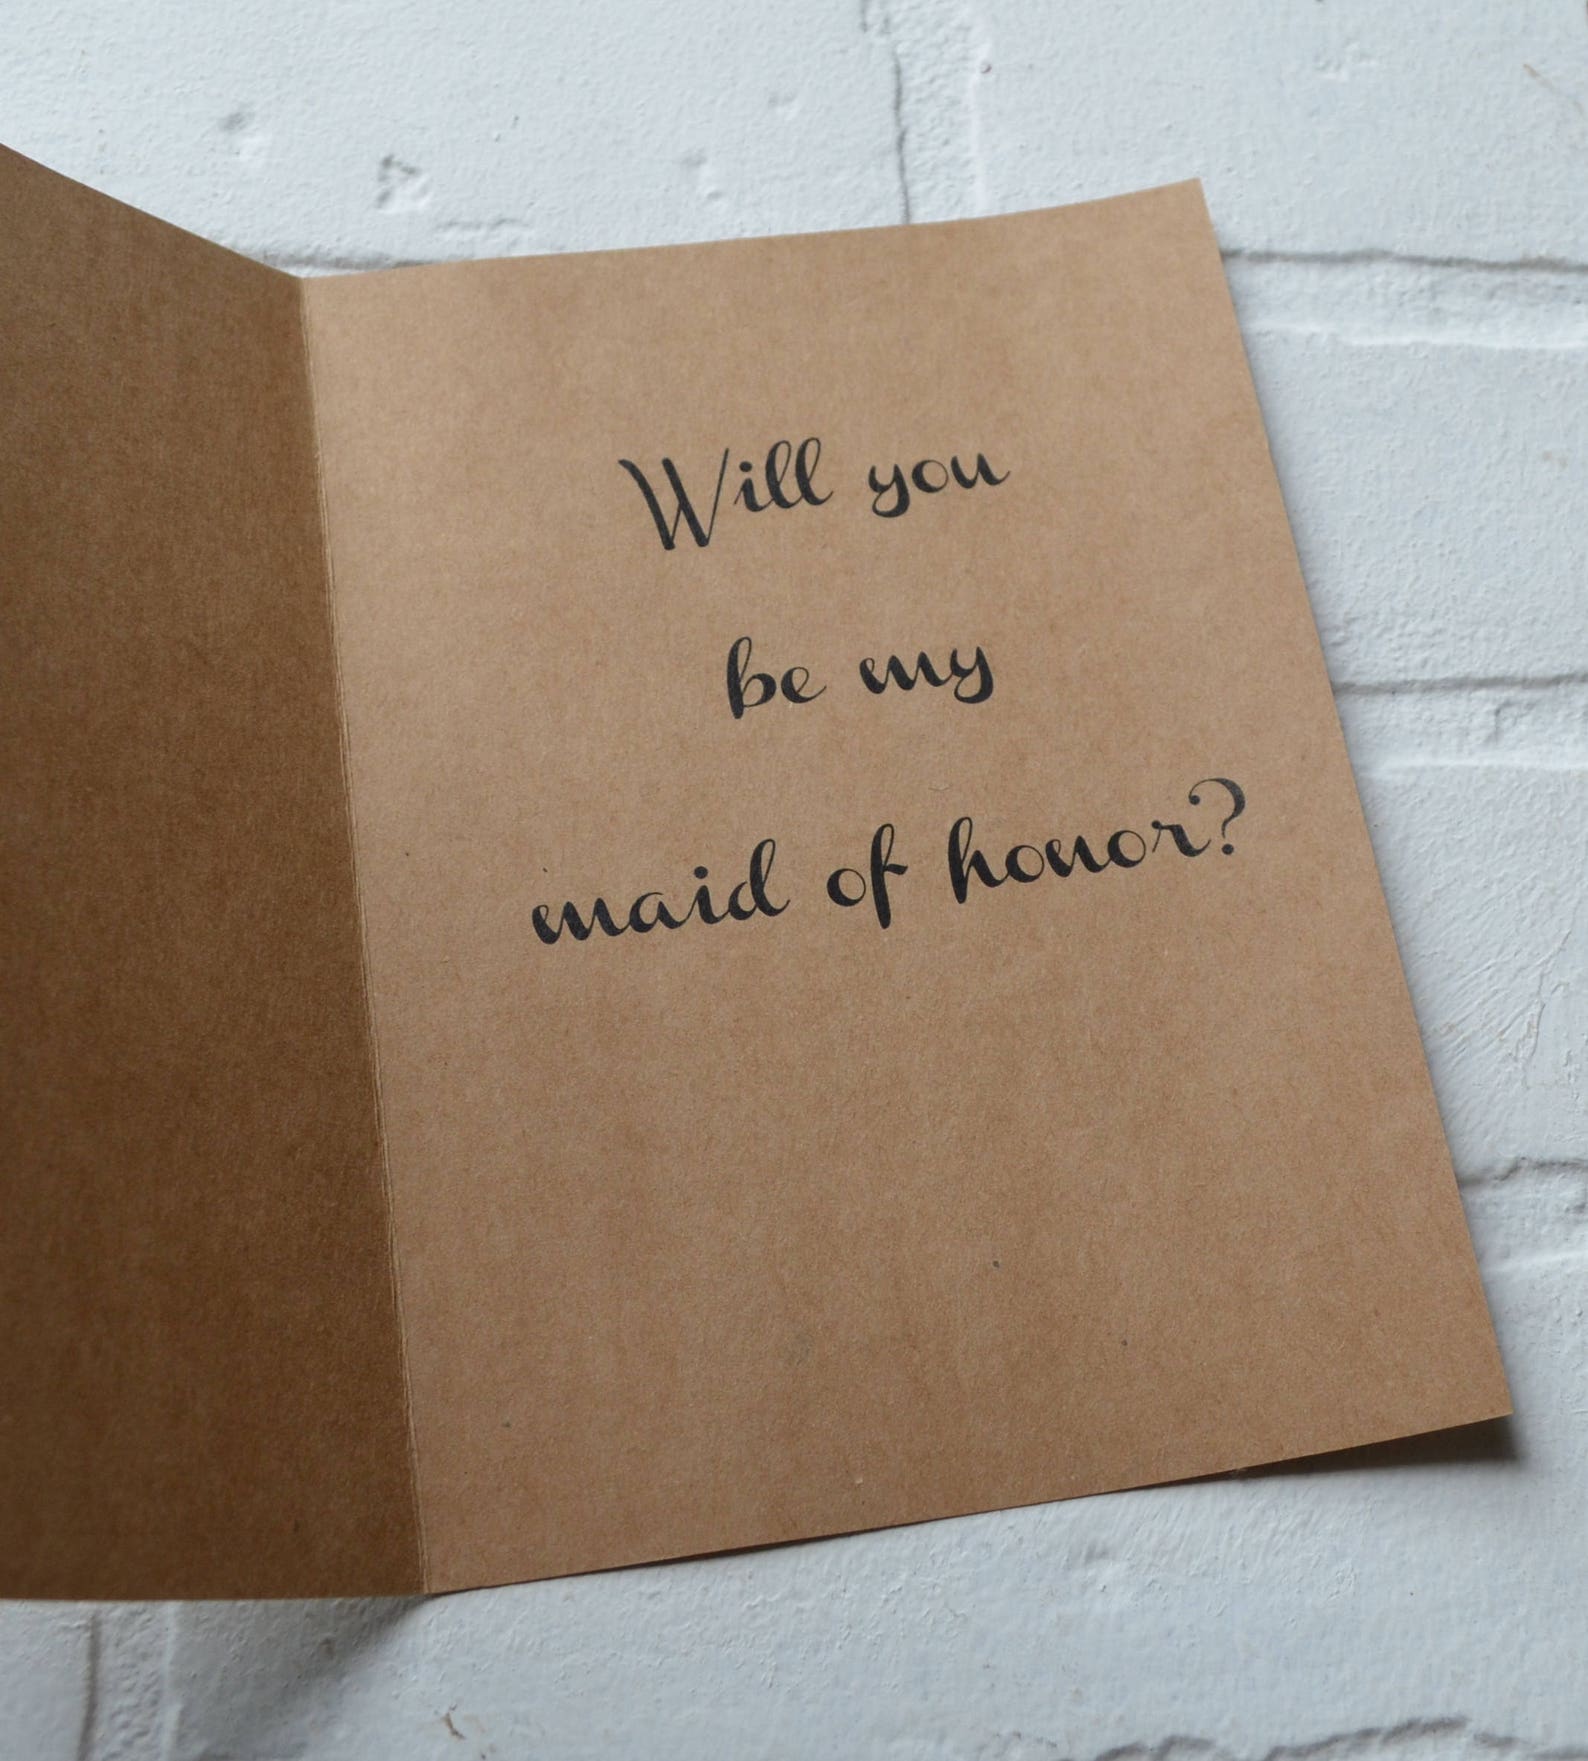 Will you
be my
maid of honor?